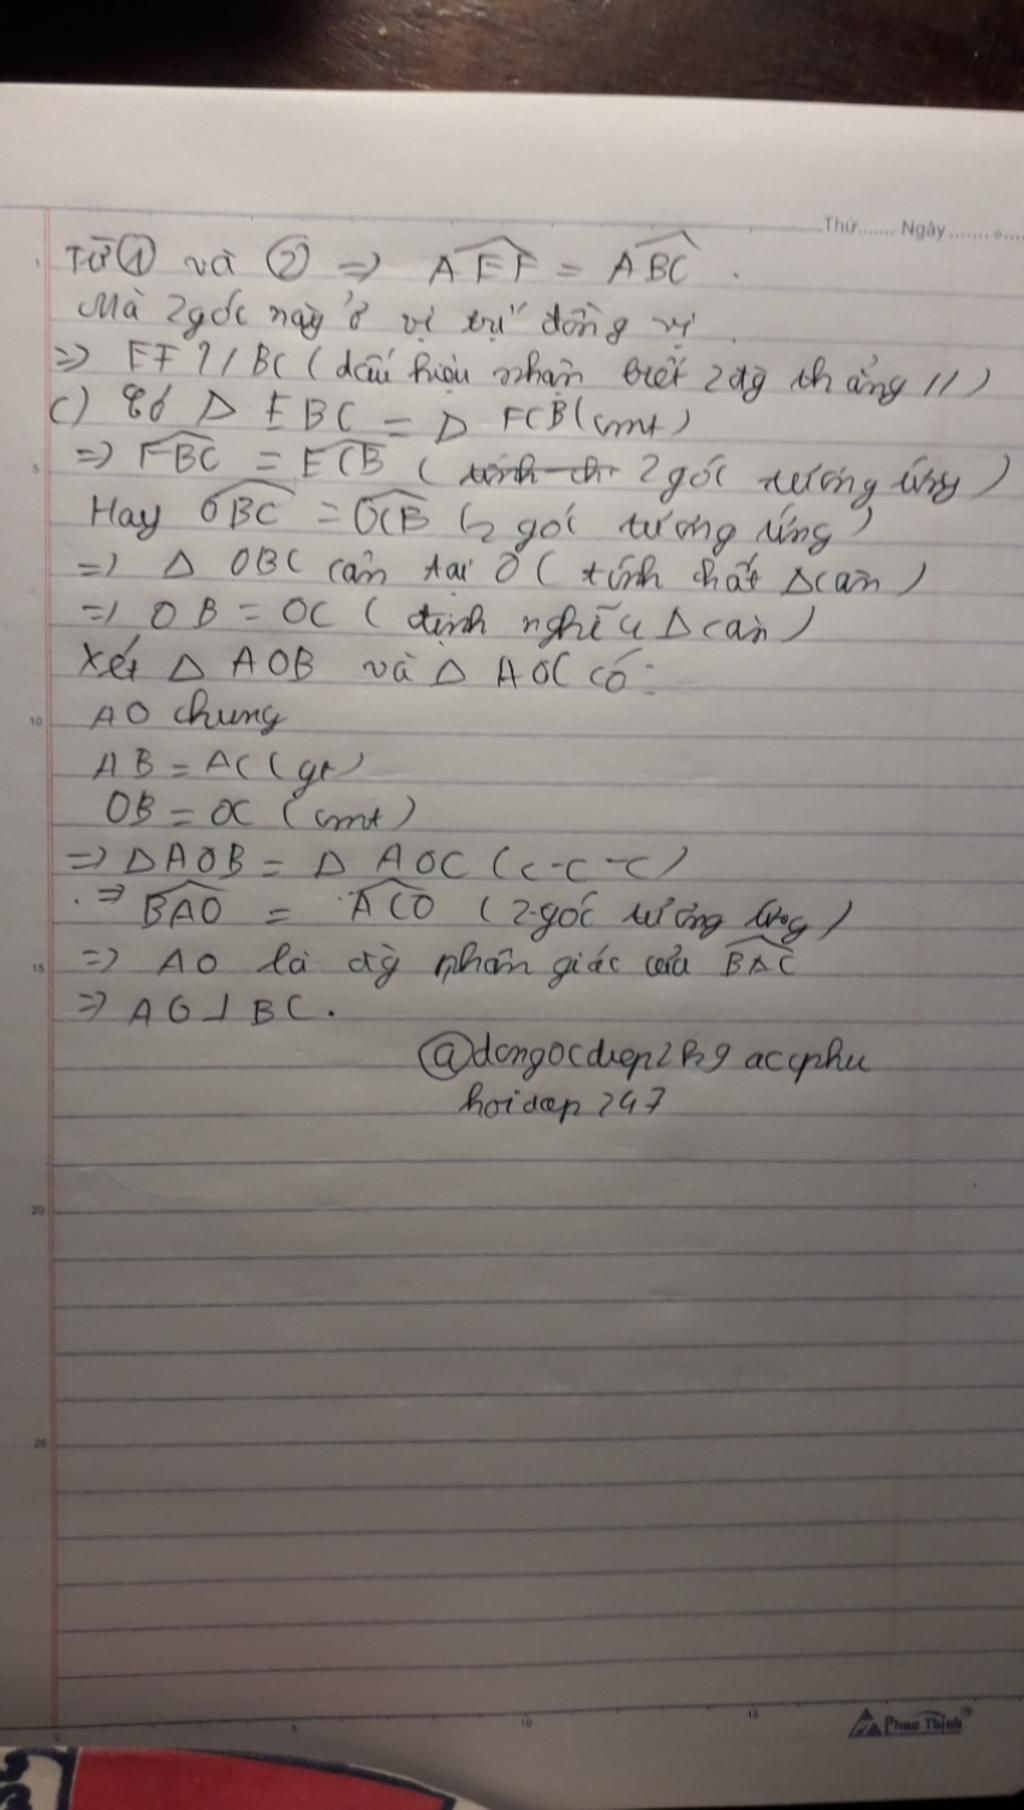 Thứ....... Ngày.......
Từ ① và ② => AEF = ABC .
Mà 2 góc này ở vị trí đồng vị
=> EF // BC ( dấu hiệu nhận biết 2 đg thẳng // )
c) Có Δ EBC = Δ FCB (cmt)
=> FBC = ECB ( 2 góc tương ứng )
Hay OBC = OCB ( 2 góc tương ứng )
=> Δ OBC cân tại O ( tính chất Δ cân )
=> OB = OC ( định nghĩa Δ cân )
Xét Δ AOB và Δ AOC có :
AO chung
AB = AC ( gt )
OB = OC ( cmt )
=> Δ AOB = Δ AOC ( c - c - c )
=> BAO = ACO ( 2 góc tương ứng )
=> AO là đg phân giác của BAC
=> AO ⊥ BC .
@dongocdiep2k9 accphu
hoidap 247
5
10
15
20
25
0 5 10 15
Phuc Thinh